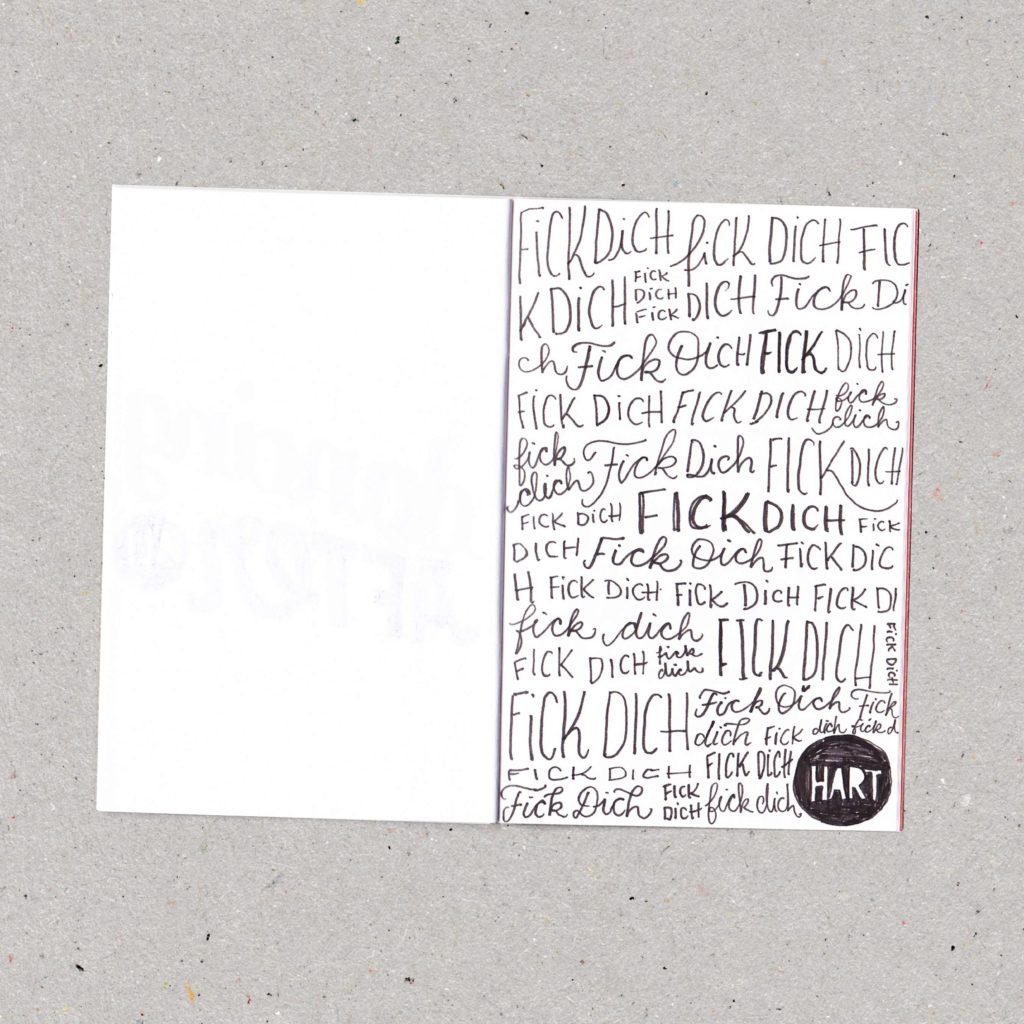 FiCK DiCH fiCK DiCH FIC
K DiCH FICK DICH FICK DICH Fick Di
ch Fick Dich FICK DICH
FICK DiCH FICK DICH fick dich
fick dich Fick Dich FICK DICH
FICK DICH FICK DICH FICK
DICH Fick Dich FICK DIC
H FICK DICH FICK DICH FICK DI
fick dich FICK DICH FICK DICH
FICK DICH fick dich
FiCK DICH Fick Dich Fick
dich FICK dich fick d
FICK DICH FICK DICH
Fick Dich FICK DICH fick dich
HART